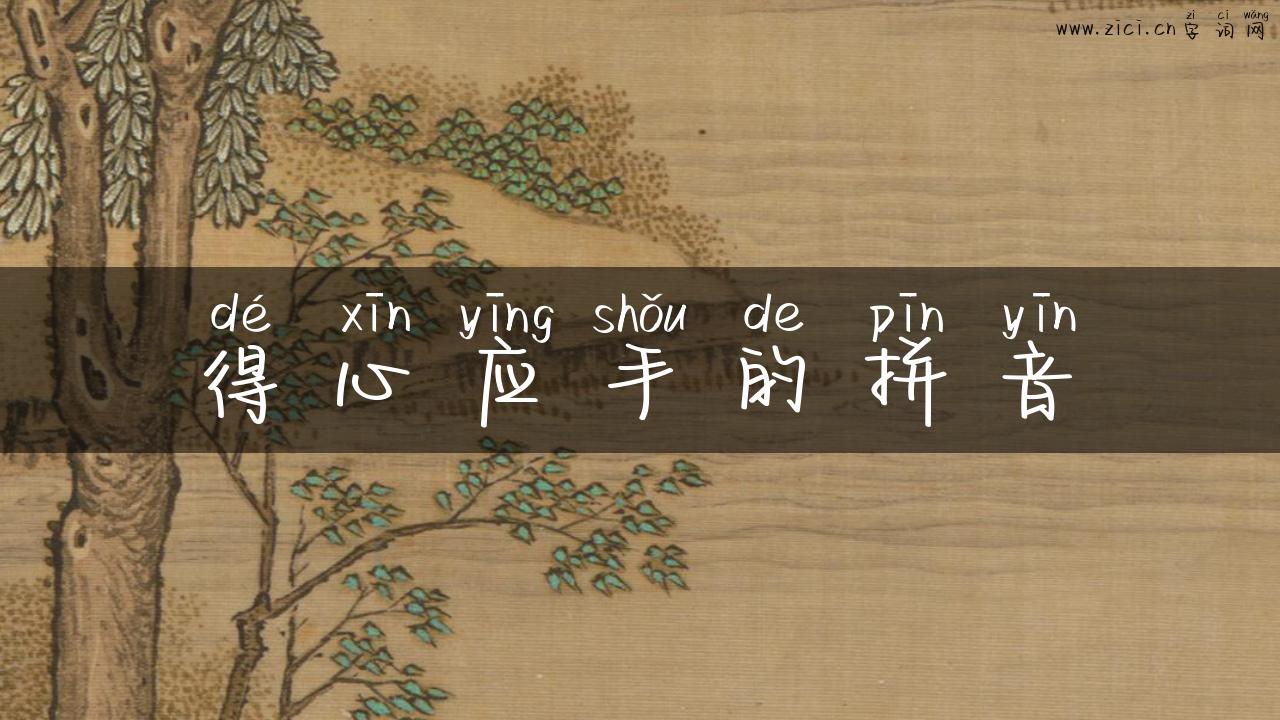 zì cí wǎng
www.zici.cn 字词网
dé xīn yīng shǒu de pīn yīn
得心应手的拼音